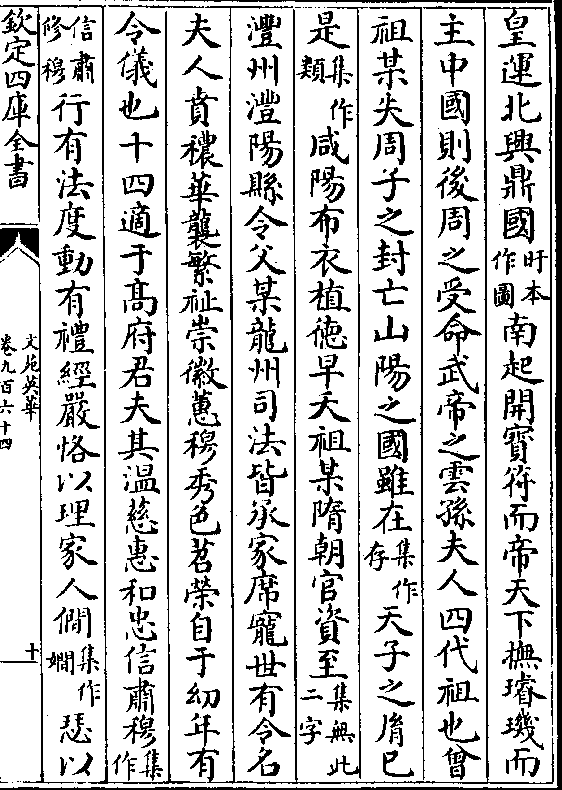 皇運北興鼎國盱本作圖南起開寳符而帝天下撫璿璣而
主中國則後周之受命武帝之雲孫夫人四代祖也曾
祖某失周子之封亡山陽之國雖在集作存天子之胤已
是集作類咸陽布衣植德早夭祖某隋朝官資至集無此二字
灃州灃陽縣令父某龍州司法皆承家席寵世有令名
夫人賁穠華襲繁祉崇徽蕙穆秀色苕榮自于幼年有
令儀也十四適于髙府君夫其温慈惠和忠信肅穆集作
信肅修穆行有法度動有禮經嚴恪以理家人僩集作嫺瑟以
欽定四庫全書
文苑英華
卷九百六十四
十